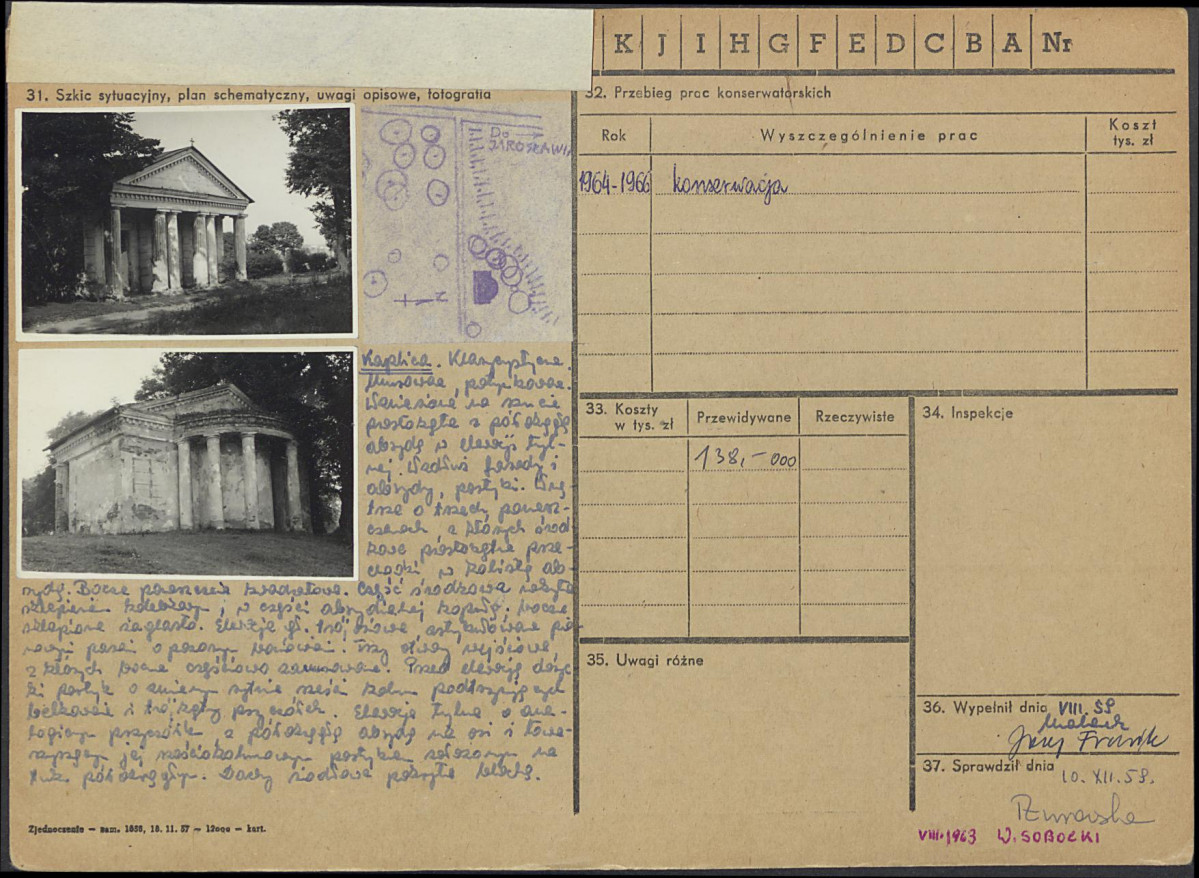 K J I H G F E D C B A Nr
31. Szkic sytuacyjny, plan schematyczny, uwagi opisowe, fotografia
Do
JAROSŁAWIA
N
Kaplica. Klasycystyczna.
Murowana, potynkowana.
Wzniesiona na rzucie
prostokąta z półokrągłą
absydą w elewacji tyl-
nej. Wzdłuż fasady i
absydy, portyki. Wnę-
trze o trzech pomiesz-
czeniach, z których środ-
kowe prostokątne prze-
chodzi w kolistą ab-
sydę. Boczne pomieszczenia kwadratowe. Część środkowa nakryta
sklepieniem kolebkowym, w części absydialnej kopułą. boczne
sklepione żaglasto. Elewacje gł. trójosiowa, artykułowana pio-
nowymi pasami o poziomym boniowaniu. Trzy otwory wejściowe,
z których boczne częściowo zamurowane. Przed elewacją
portyk o sześciu kolumn podtrzymujących
belkowanie i trójkątny przyczółek. Elewacja tylna o ana-
logicznym przyczółku z półokrągłą absydą na osi i towa-
rzyszącym jej sześciokolumnowym portykiem założonym na
rzuc. półokrągłym. Dachy siodłowe pokryte blachą.
Zjednoczenie — zam. 1058, 16. 11. 57 — 12000 — kart.
32. Przebieg prac konserwatorskich
Rok Wyszczególnienie prac Koszt tys. zł
1964-1966 konserwacja
33. Koszty w tys. zł Przewidywane Rzeczywiste
138,- 000
34. Inspekcje
35. Uwagi różne
36. Wypełnił dnia VIII. 59
Jerzy Frasik
37. Sprawdził dnia 10. XII. 59.
VIII.1963 W. SOBOCKI